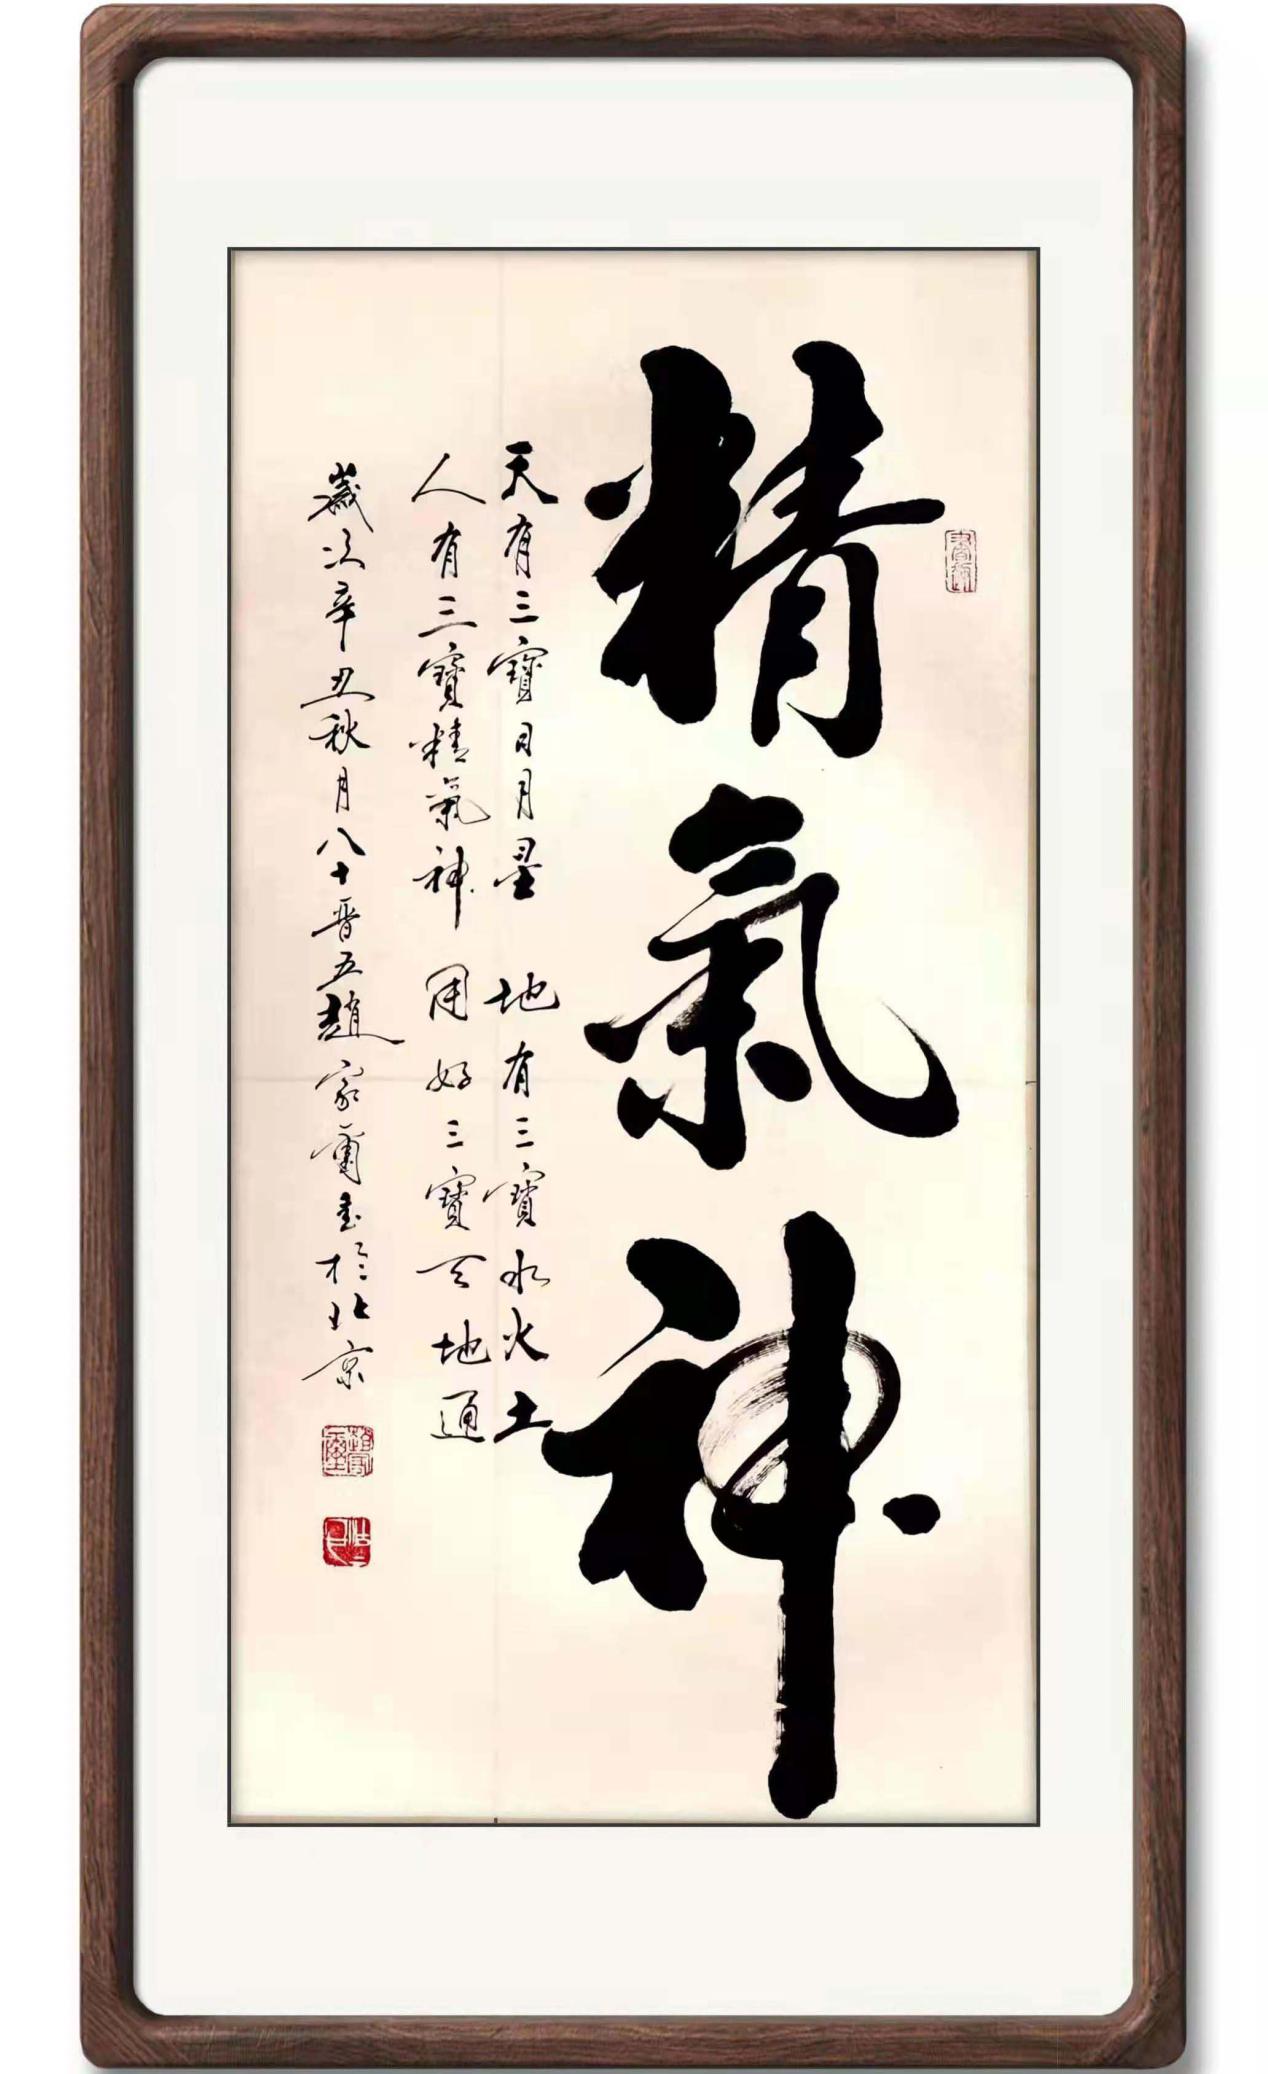 精氣神
天有三寶日月星 地有三寶水火土
人有三寶精氣神 用好三寶天地通
歲次辛丑秋月八十晋五趙家蘭書於北京